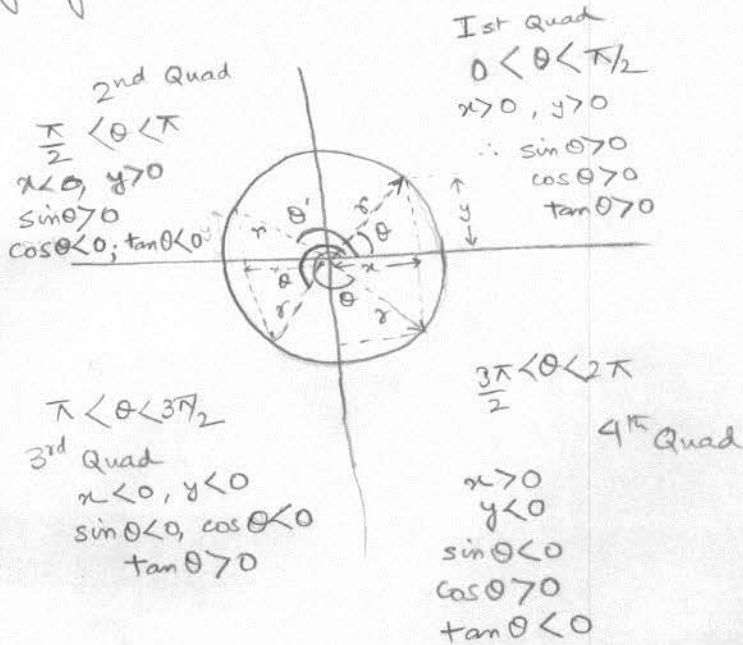 Ist Quad
0 < θ < π/2
x>0, y>0
∴ sinθ>0
cosθ>0
tanθ>0
2nd Quad
π/2 < θ < π
x<0, y>0
sinθ>0
cosθ<0; tanθ<0
θ'
r
θ
y
r
x
θ
θ
r
r
π < θ < 3π/2
3rd Quad
x<0, y<0
sinθ<0, cosθ<0
tanθ>0
3π/2 < θ < 2π
4th Quad
x>0
y<0
sinθ<0
cosθ>0
tanθ<0